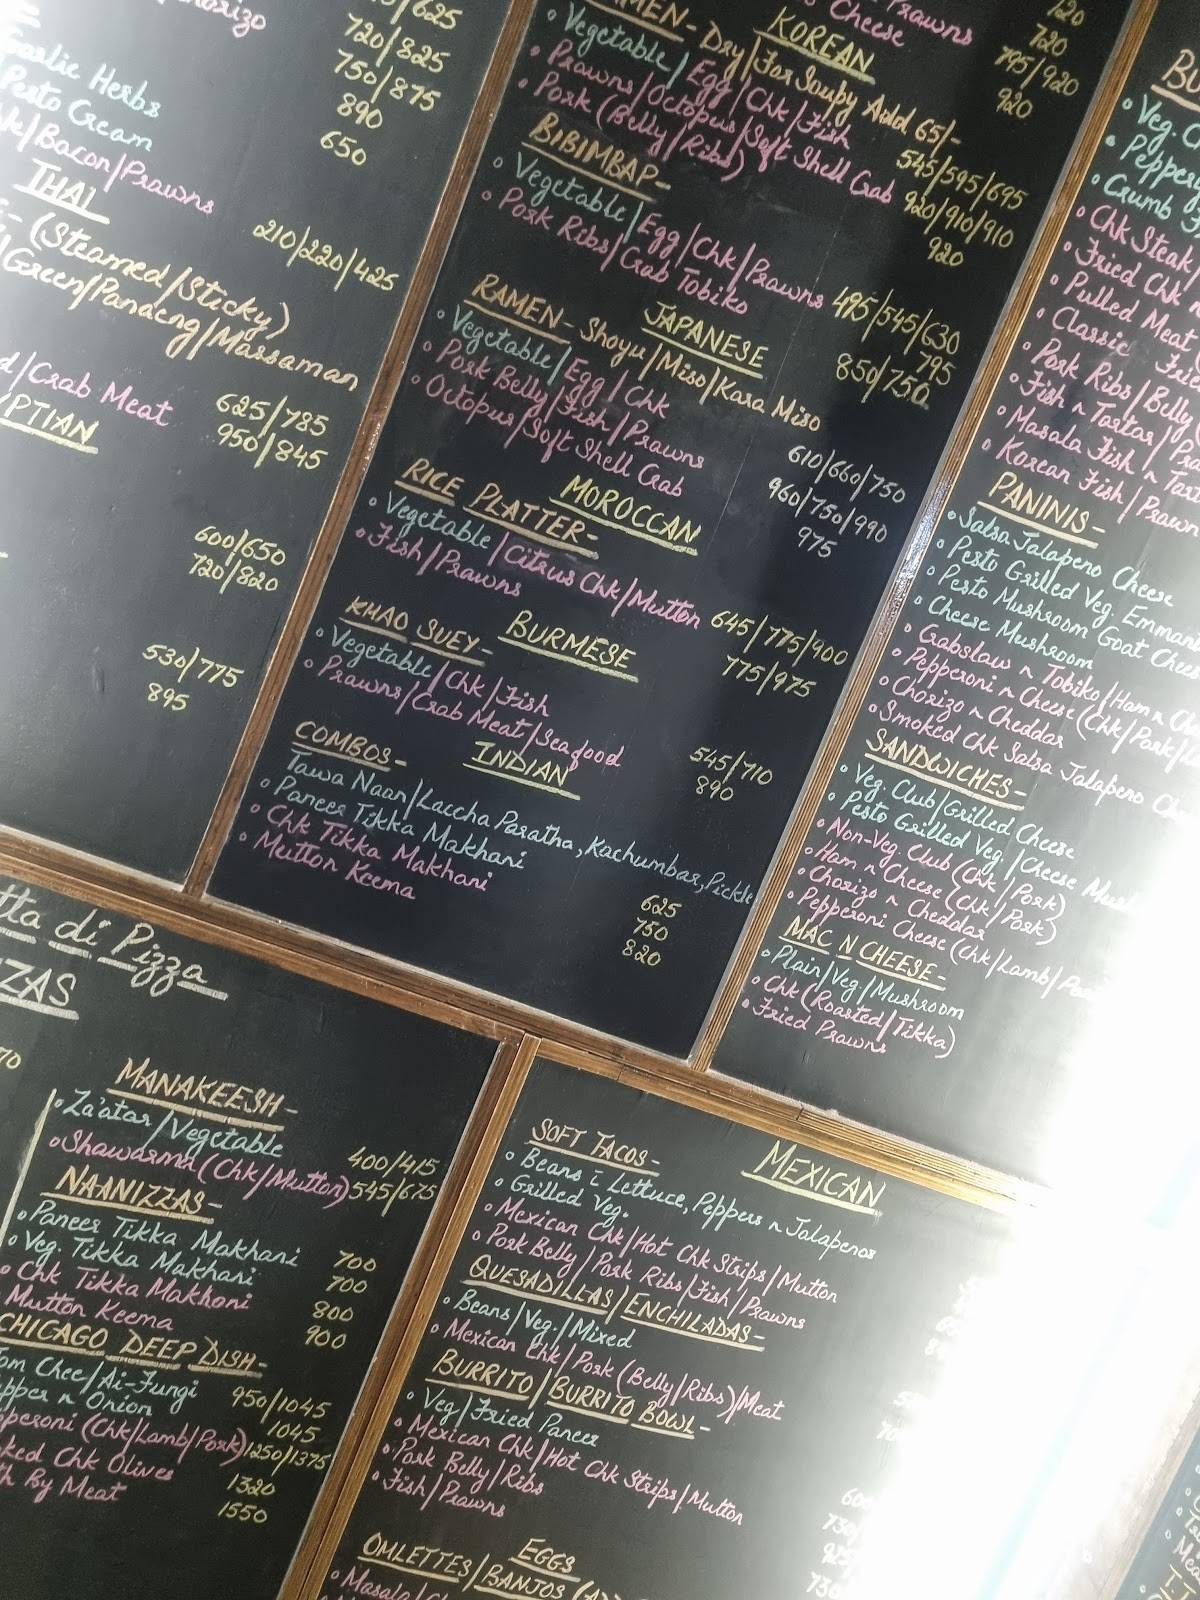 625
720/825
Garlic Herbs 750/875
Pesto Cream 890
/Bacon/Prawns 650
THAI
(Steamed/Sticky) 210/220/425
Green/Panaeng/Massaman
/Crab Meat 625/785
950/845
600/650
720/820
530/775
895
KOREAN
Prawns 720
Cheese 720
795/920
920
RAMEN- Dry/For Soupy Add 65/-
Vegetable/Egg/Chk/Fish 545/595/695
Prawns/Octopus/Soft Shell Crab 920/910/910
Pork (Belly/Ribs) 920
BIBIMBAP-
Vegetable/Egg/Chk/Prawns 495/545/630
795
Pork Ribs/Crab Tobiko 850/750
JAPANESE
RAMEN- Shoyu/Miso/Kara Miso
Vegetable/Egg/Chk 610/660/750
Pork Belly/Fish/Prawns 960/750/990
Octopus/Soft Shell Crab 975
MOROCCAN
RICE PLATTER-
Vegetable/Citrus Chk/Mutton 645/775/900
Fish/Prawns 775/975
BURMESE
KHAO SUEY-
Vegetable/Chk/Fish 545/710
Prawns/Crab Meat/Seafood 890
INDIAN
COMBOS-
Tawa Naan/Laccha Paratha, Kachumbar, Pickle
Paneer Tikka Makhani 625
Chk Tikka Makhani 750
Mutton Keema 820
Veg.
Crumb
Chk Steak
Fried Chk
Pulled Meat
Classic
Pork Ribs/Belly
Fish n Tartar
Masala Fish n
Korean Fish/Prawn
PANINIS-
Salsa Jalapeno Cheese
Pesto Grilled Veg.
Pesto Mushroom Goat Cheese
Cheese Mushroom
Crabslaw n Tobiko/Ham n
Pepperoni n Cheese (Chk/Pork/
Chorizo n Cheddar
Smoked Chk Salsa Jalapeno
SANDWICHES-
Veg. Club/Grilled Cheese
Pesto Grilled Veg./Cheese
Non-Veg. Club (Chk/Pork)
Ham n Cheese (Chk/Pork)
Chorizo n Cheddar
Pepperoni Cheese (Chk/Lamb/
MAC N CHEESE-
Plain/Veg/Mushroom
Chk (Roasted/Tikka)
Fried Prawns
di Pizza
MANAKEESH-
Za'atar/Vegetable 400/415
Shawarma (Chk/Mutton) 545/675
NAANIZZAS-
Paneer Tikka Makhani 700
Veg. Tikka Makhani 700
Chk Tikka Makhani 800
Mutton Keema 900
CHICAGO DEEP DISH-
Chee/Ai-Fungi 950/1045
n Onion 1045
(Chk/Lamb/Pork) 1250/1375
Chk Olives 1320
By Meat 1550
MEXICAN
SOFT TACOS-
Beans Lettuce, Peppers n Jalapenos
Grilled Veg.
Mexican Chk/Hot Chk Strips/Mutton
Pork Belly/Pork Ribs/Fish/Prawns
QUESADILLAS/ENCHILADAS-
Beans/Veg./Mixed
Mexican Chk/Pork (Belly/Ribs)/Meat
BURRITO/BURRITO BOWL-
Veg/Fried Paneer
Mexican Chk/Hot Chk Strips/Mutton
Pork Belly/Ribs
Fish/Prawns
EGGS
OMLETTES/BANJOS
Masala/